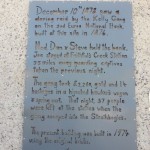 December 10th 1878 saw a
daring raid by the Kelly Gang
on the 2nd Euroa National Bank
built on this site in 1876.
Ned, Dan & Steve held the bank,
Joe stood at Faithfull Creek Station
miles away guarding captives
taken the previous night.
The gang took £2,260 gold and 14
hostages in a hijacked hawkers wagon
& going cart. That night, 37 people
were left at the station when the
gang escaped into the Strathbogies.
The present building was built in 1974
using the original bricks.